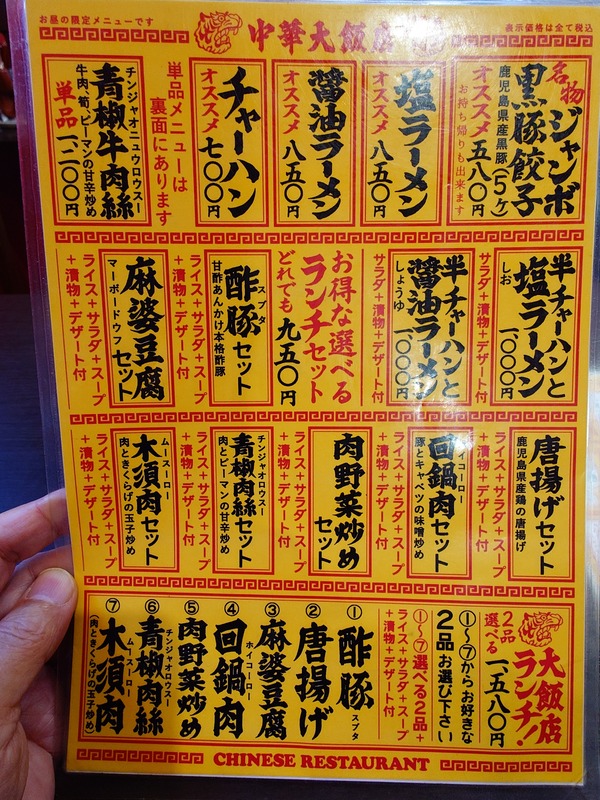 お昼の限定メニューです
中華大飯店
表示価格は全て税込
名物
ジャンボ
黒豚餃子
鹿児島県産黒豚(5ヶ)
オススメ 五八〇円
お持ち帰りも出来ます
塩ラーメン
オススメ 八五〇円
醤油ラーメン
オススメ 八五〇円
チャーハン
オススメ 七〇〇円
単品メニューは
裏面にあります
チンジャオニュウロウスー
青椒牛肉絲
牛肉、筍、ピーマンの甘辛炒め
単品 一、二〇〇円
半チャーハンと
塩ラーメン
しお 一、〇〇〇円
サラダ+漬物+デザート付
半チャーハンと
醤油ラーメン
しょうゆ 一、〇〇〇円
サラダ+漬物+デザート付
お得な選べる
ランチセット
どれでも 九五〇円
酢豚セット
スブタ
甘酢あんかけ本格酢豚
ライス+サラダ+スープ
+漬物+デザート付
麻婆豆腐セット
マーボードウフ
ライス+サラダ+スープ
+漬物+デザート付
唐揚げセット
鹿児島県産鶏の唐揚げ
ライス+サラダ+スープ
+漬物+デザート付
回鍋肉セット
豚とキャベツの味噌炒め
ライス+サラダ+スープ
+漬物+デザート付
肉野菜炒め
セット
ライス+サラダ+スープ
+漬物+デザート付
チンジャオロウスー
青椒肉絲セット
肉とピーマンの甘辛炒め
ライス+サラダ+スープ
+漬物+デザート付
ムースーロー
木須肉セット
肉ときくらげの玉子炒め
ライス+サラダ+スープ
+漬物+デザート付
大飯店
ランチ!
2品
選べる 一、五八〇円
①〜⑦からお好きな
2品お選び下さい
①〜⑦選べる2品+
ライス+サラダ+スープ
+漬物+デザート付
①酢豚 スブタ
②唐揚げ
③麻婆豆腐
ホイコーロー
④回鍋肉
⑤肉野菜炒め
チンジャオロウスー
⑥青椒肉絲
ムースーロー
⑦木須肉
(肉ときくらげの玉子炒め)
CHINESE RESTAURANT